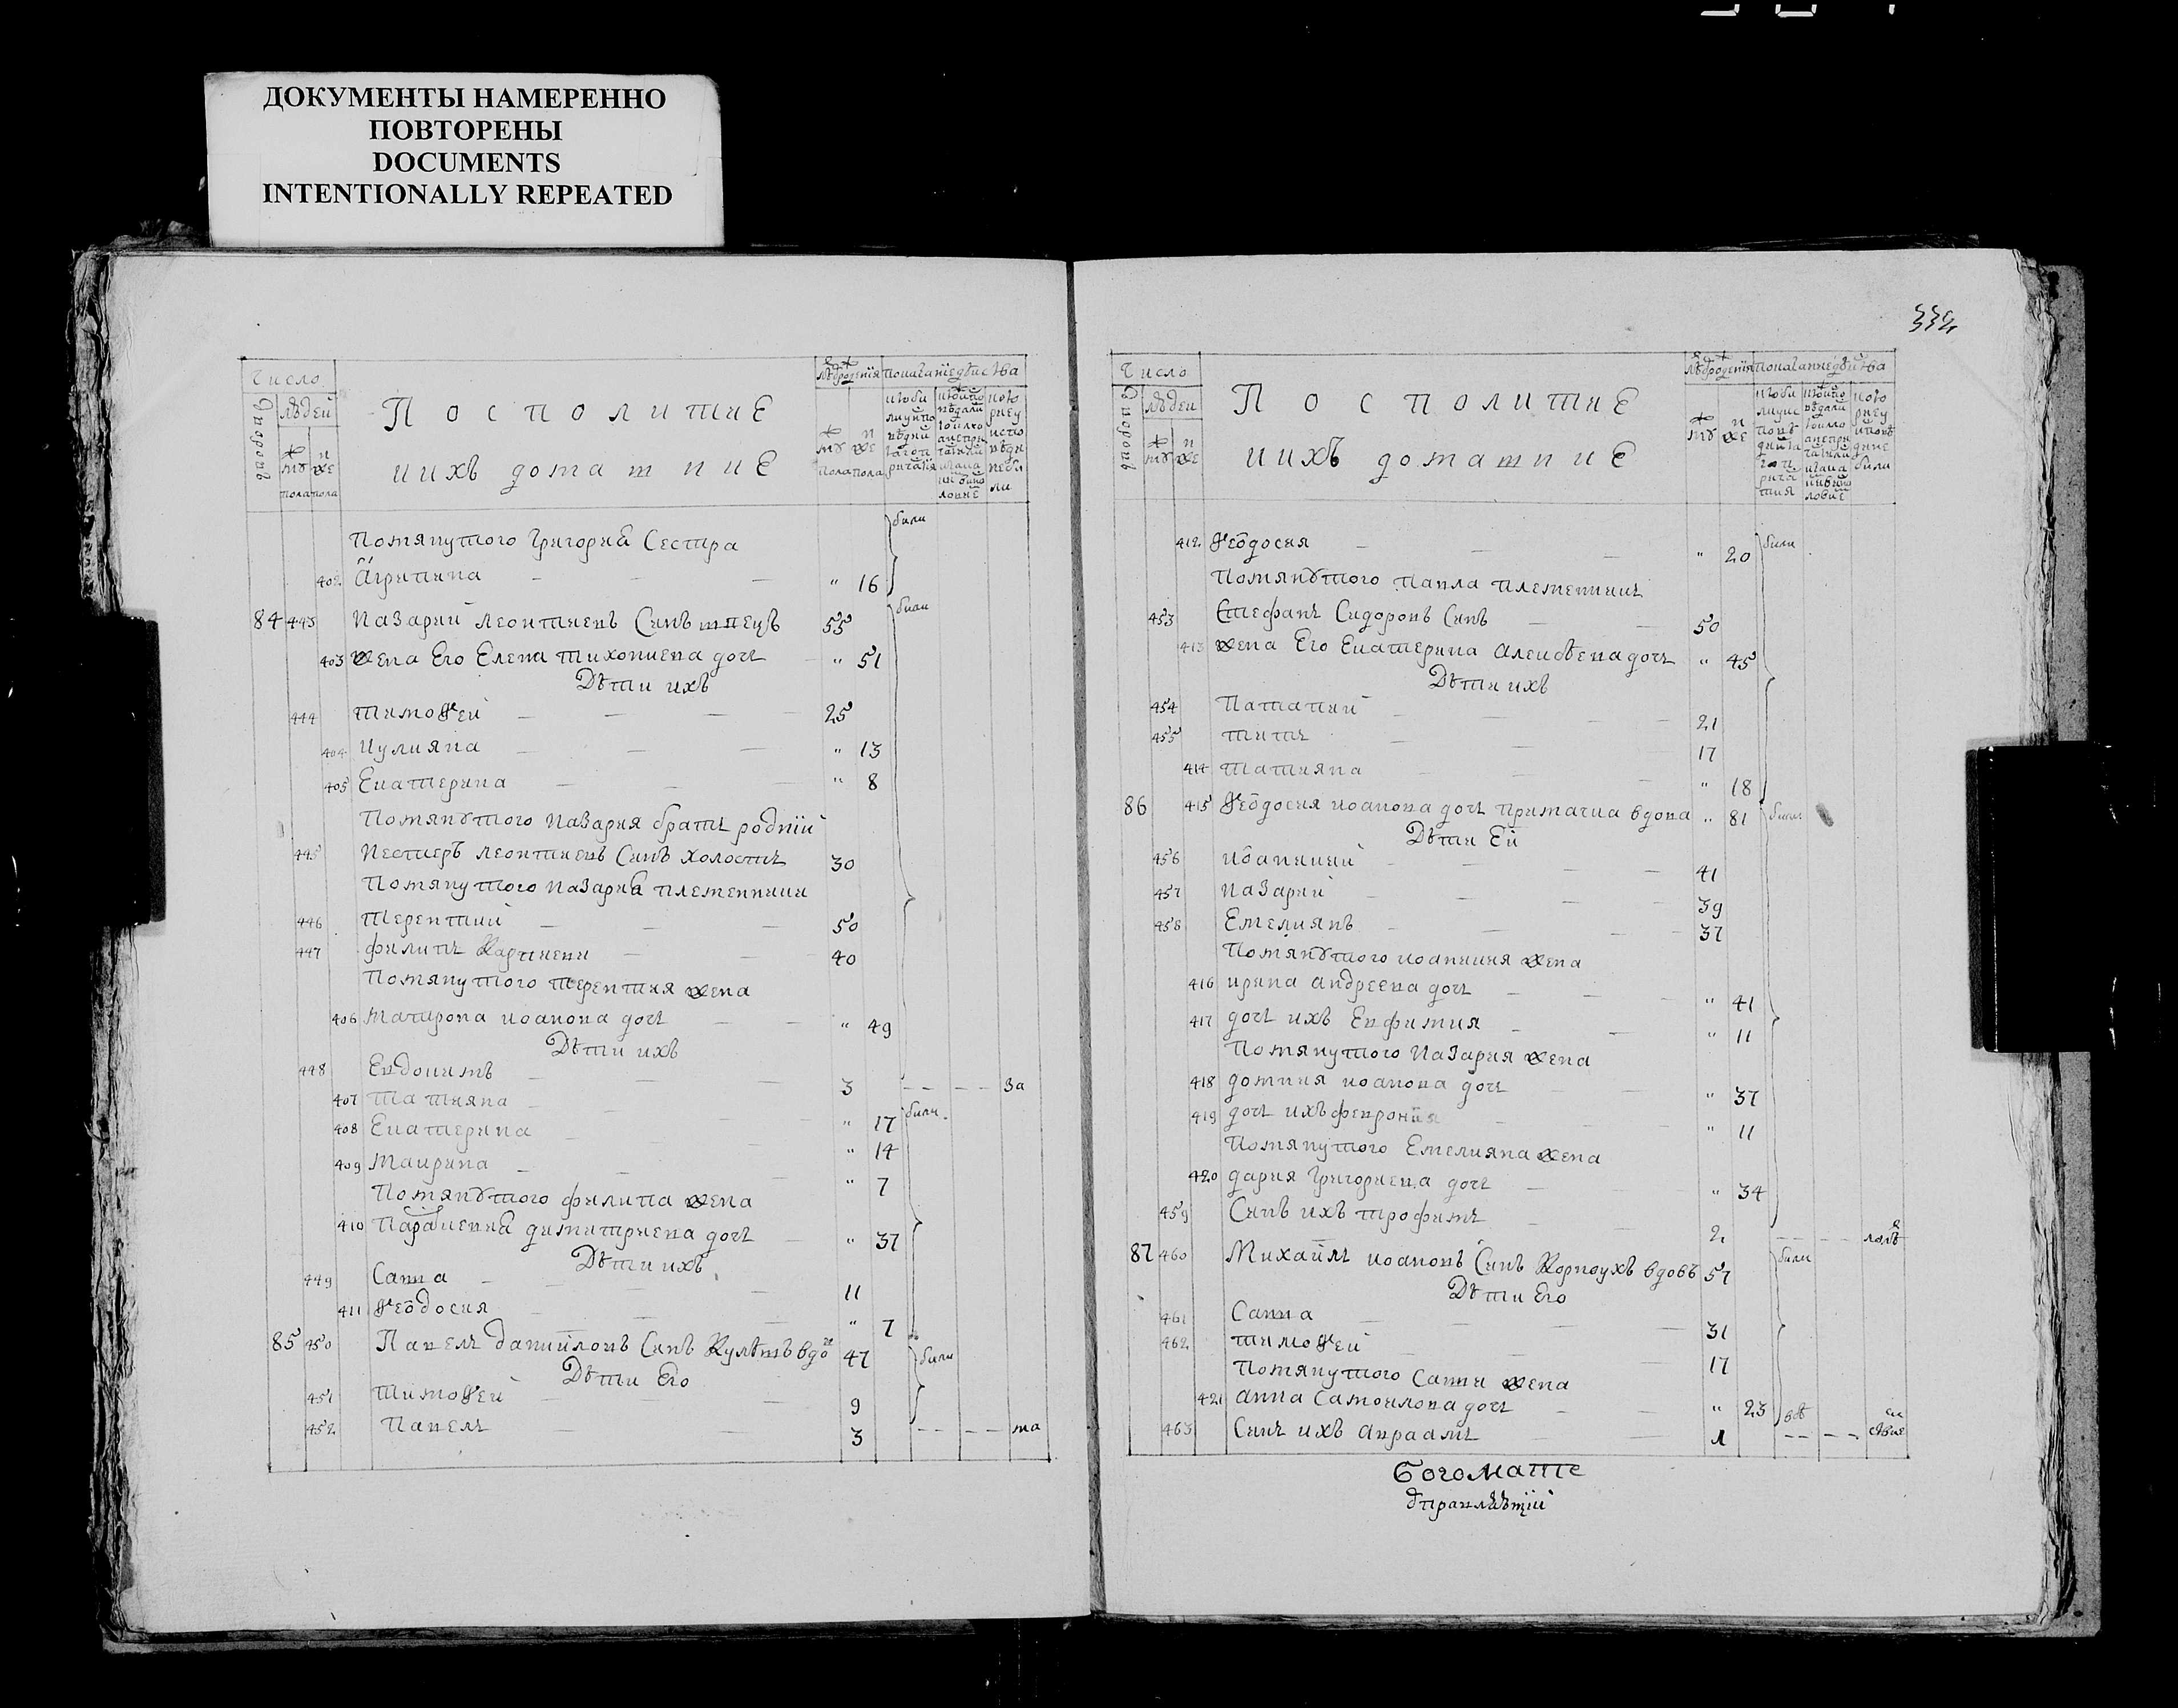 ДОКУМЕНТЫ НАМЕРЕННО
ПОВТОРЕНЫ
DOCUMENTS
INTENTIONALLY REPEATED
Число
людей
Посполитие
ихъ домашние
помянутого Григория Сестра
402 Агрипина " 16 били
84 443 Назарий леонтиевъ Синъ швецъ 55 били
403 жена Его Елена тихониева дочь " 51
Дѣти ихъ
444 тимоѳей 25
404 Иулияна " 13
405 Екатерина " 8
помянутого Назария братъ роднiй
445 Нестеръ леонтиевъ Синъ холостъ 30
помянутого Назария племенники
446 терентий 50
447 филипъ Карпиеви 40
помянутого терентия жена
406 матрона иоанова дочь " 49
Дѣти ихъ
448 Евдокимъ 3 за
407 татияна " 17 били
408 Екатерина " 14
409 маврина " 7
помянутого филипа жена
410 параскевия димитриева дочь " 37
Дѣти ихъ
449 Савва 11
411 ѳеодосия " 7
85 450 Павелъ даниловъ Синъ Кулѣшъ вдо 47 били
Дѣти Его
451 тимоѳей 9
452 Павелъ 3 ма
334
Число
дворовъ
людей
Посполитие
ихъ домашние
412 ѳеодосия " 20 били
помянутого павла племенникъ
453 Стефанъ Сидоровъ Синъ 50
413 жена Его Екатерина алексѣева дочь " 45
Дѣти ихъ
454 Патапий 21
455 титъ 17
414 татияна " 18
86 415 ѳеодосия иоанова дочь примачка вдова " 81 били
Дѣти Ей
456 иоаникий 41
457 Назарий 39
458 Емелиянъ 37
помянутого иоаникия жена
416 ирина андреева дочь " 41
417 дочь ихъ Евфимия " 11
помянутого Назария жена
418 домния иоанова дочь " 37
419 дочь ихъ феврония " 11
помянутого Емелияна жена
420 дария Григориева дочь " 34
459 Синъ ихъ трофимъ 2
87 460 Михайлъ иоановъ Синъ Корноухъ вдовъ 57 били
Дѣти Его
461 Савва 31
462 тимоѳей 17
помянутого Саввы жена
421 анна Самоилова дочь " 23
463 Синъ ихъ авраамъ 1